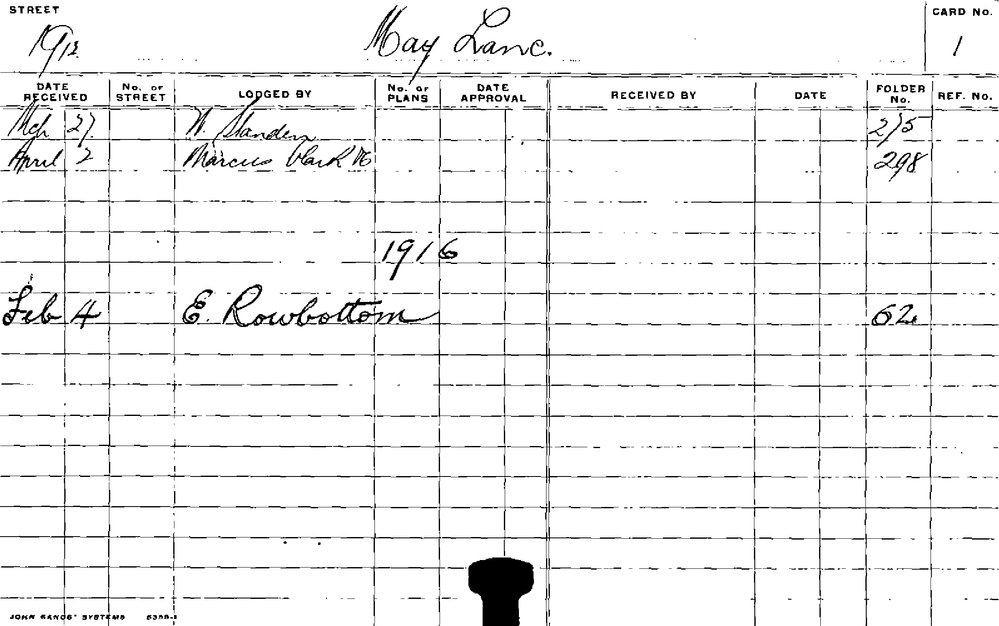 STREET CARD No.
1912 May Lane. 1
DATE RECEIVED No. OF STREET LODGED BY No. OF PLANS DATE APPROVAL RECEIVED BY DATE FOLDER No. REF. No.
Mch 27 W. Standen 215
April 2 Marcus Clark 298
1916
Feb 4 E. Rowbottom 62
JOHN SANDS' SYSTEMS